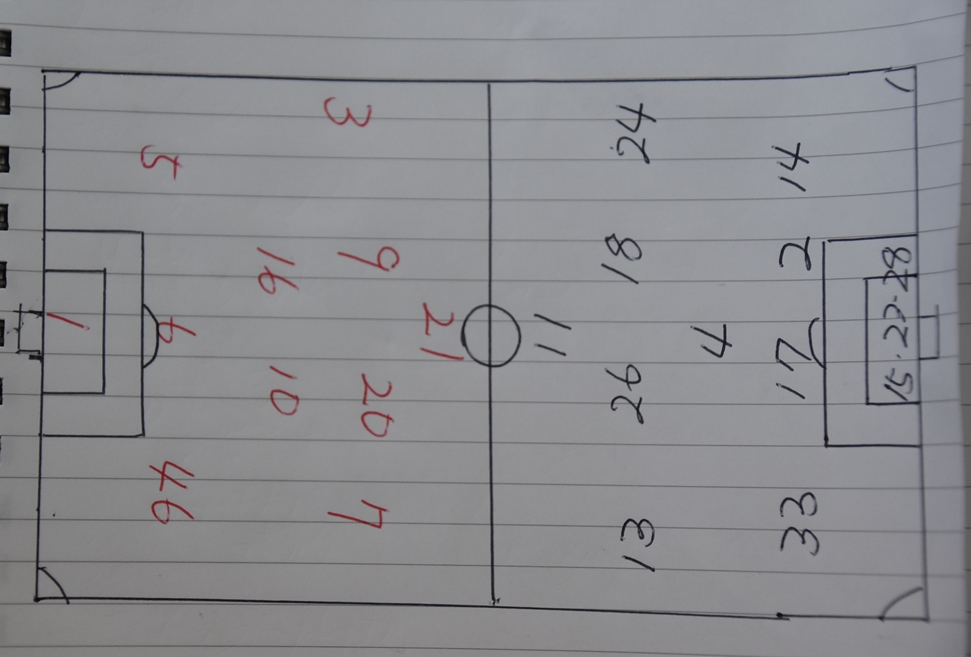 21
3 9 20 7
16 10
5 6 46
1
11
13 26 18 24
4
33 17 2 14
15. 28